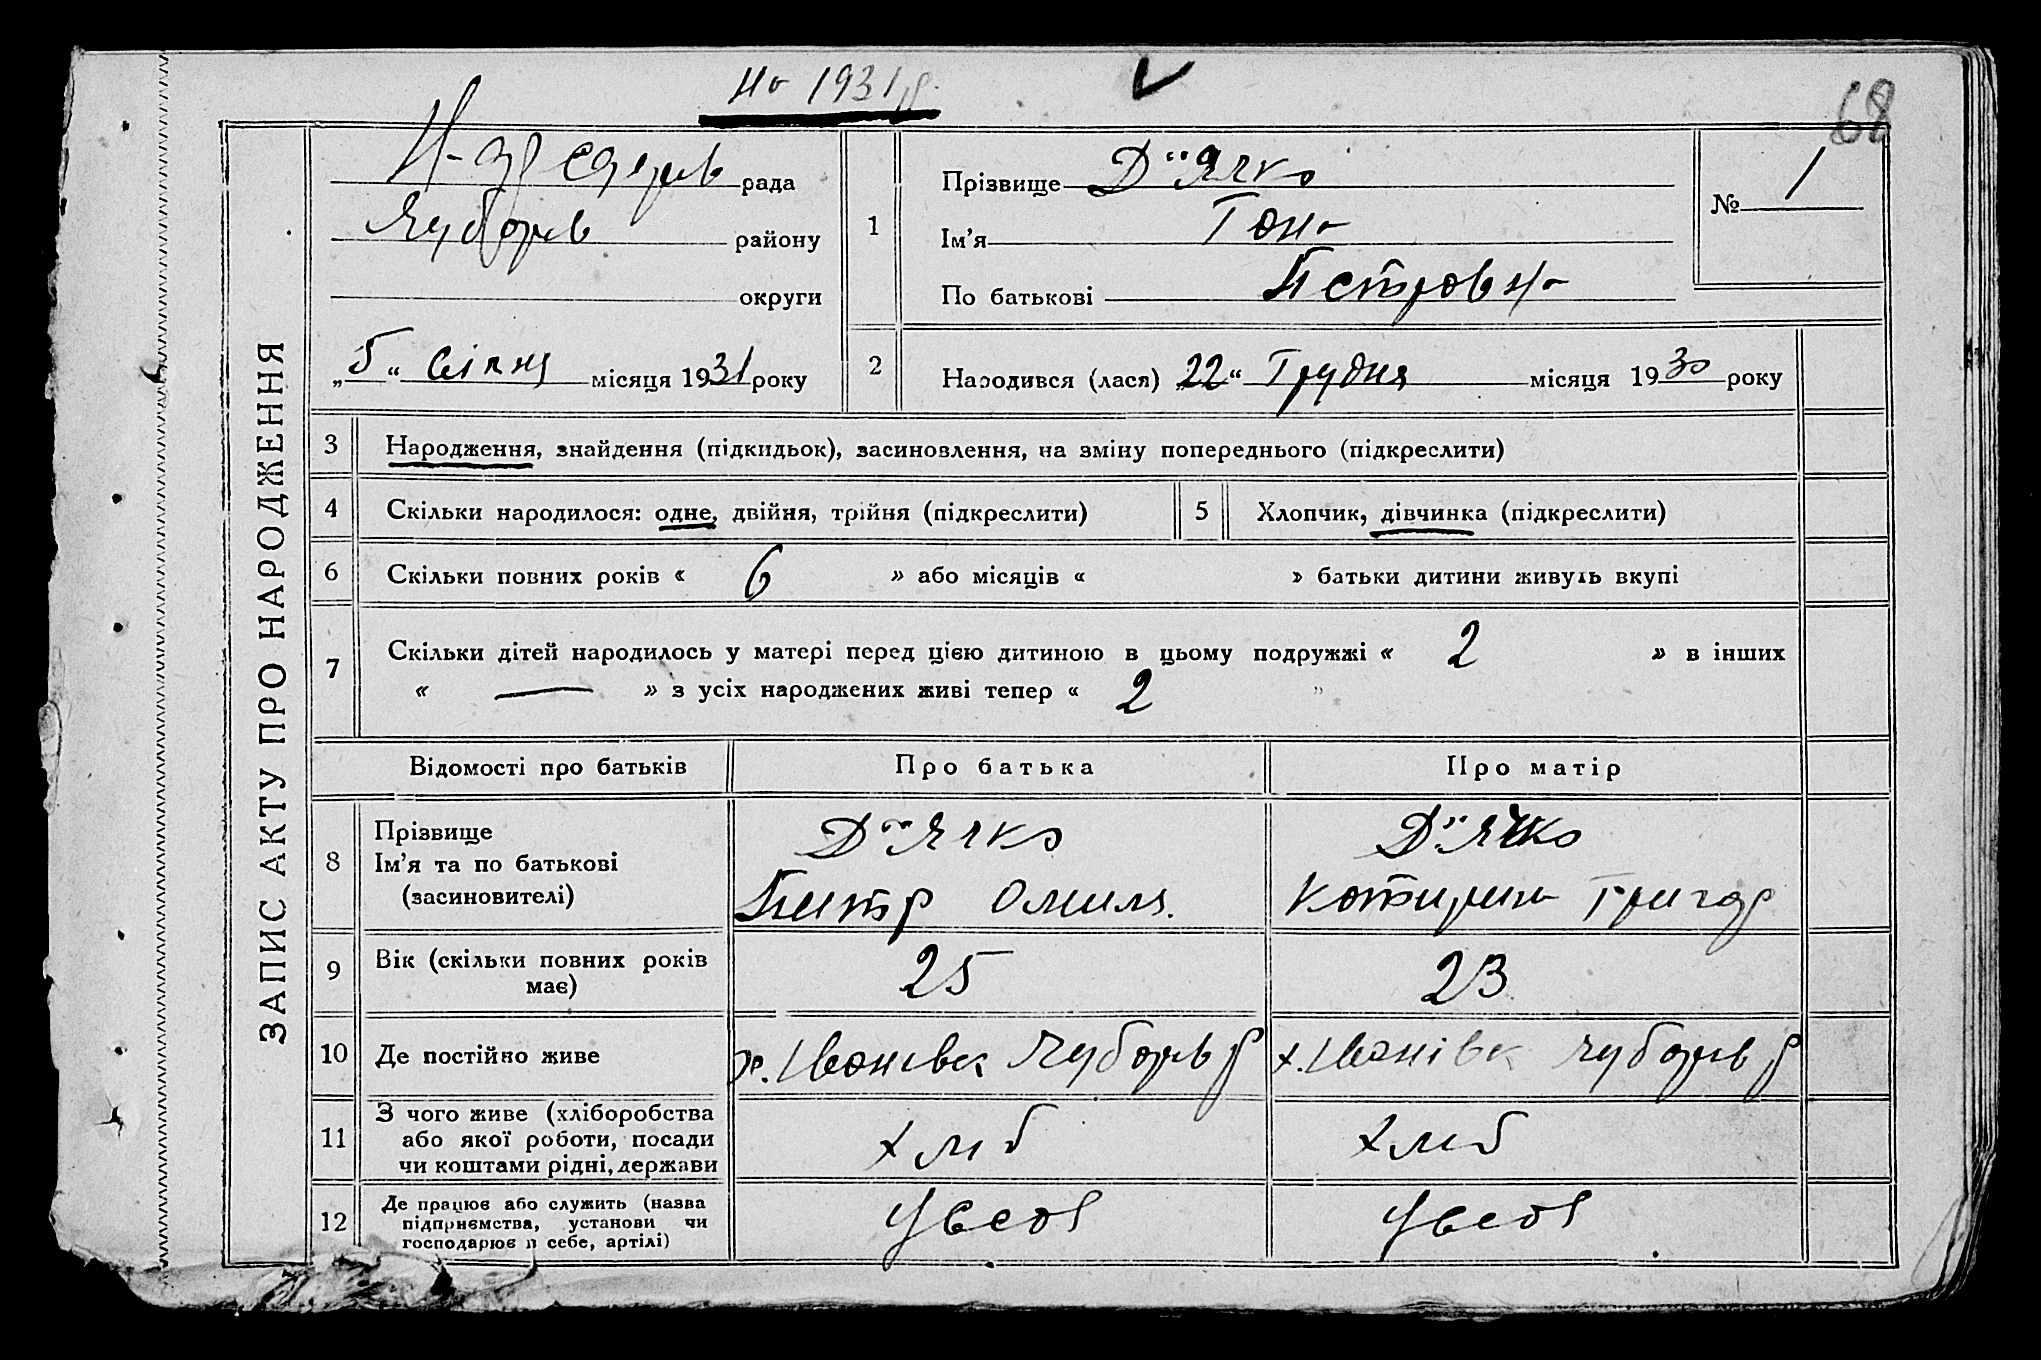 На 1931 р.
68
ЗАПИС АКТУ ПРО НАРОДЖЕННЯ
рада
Чубарів району
округи
„5“ Січня місяця 1931 року
1
Прізвище Д"ячко
Ім'я Гана
По батькові Петровна
№ 1
2
Народився (лася) „22“ Грудня місяця 1930 року
3 Народження, знайдення (підкидьок), засиновлення, на зміну попереднього (підкреслити)
4 Скільки народилося: одне, двійня, трійня (підкреслити) 5 Хлопчик, дівчинка (підкреслити)
6 Скільки повних років « 6 » або місяців « » батьки дитини живуть вкупі
7 Скільки дітей народилось у матері перед цією дитиною в цьому подружжі « 2 » в інших
« — » з усіх народжених живі тепер « 2 »
Відомості про батьків Про батька Про матір
8 Прізвище Д"ячко Д"ячко
Ім'я та по батькові
(засиновителі) Питр Омиля. Катирина Григор
9 Вік (скільки повних років 25 23
має)
10 Де постійно живе х. Іванівк Чубарів р х. Іванівк Чубарів р
11 З чого живе (хліборобства
або якої роботи, посади хліб хліб
чи коштами рідні, держави
12 Де працює або служить (назва
підприємства, установи чи У себя У себя
господарює в себе, артілі)